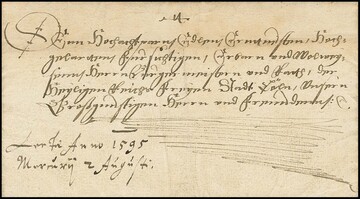 Den Hochachtparn Edlen Ernuesten, Hoch-
gelarten, Fürsichtigen, Ersam und Wolwey-
senn Herrn Bürgermeistern und Rath, der
Heyligen Reichs Freyen Stadt Cöln, Unsern
Großgunstigen Herrn und Freunden
Lecti Anno 1595
Mercurij 2 Augusti.